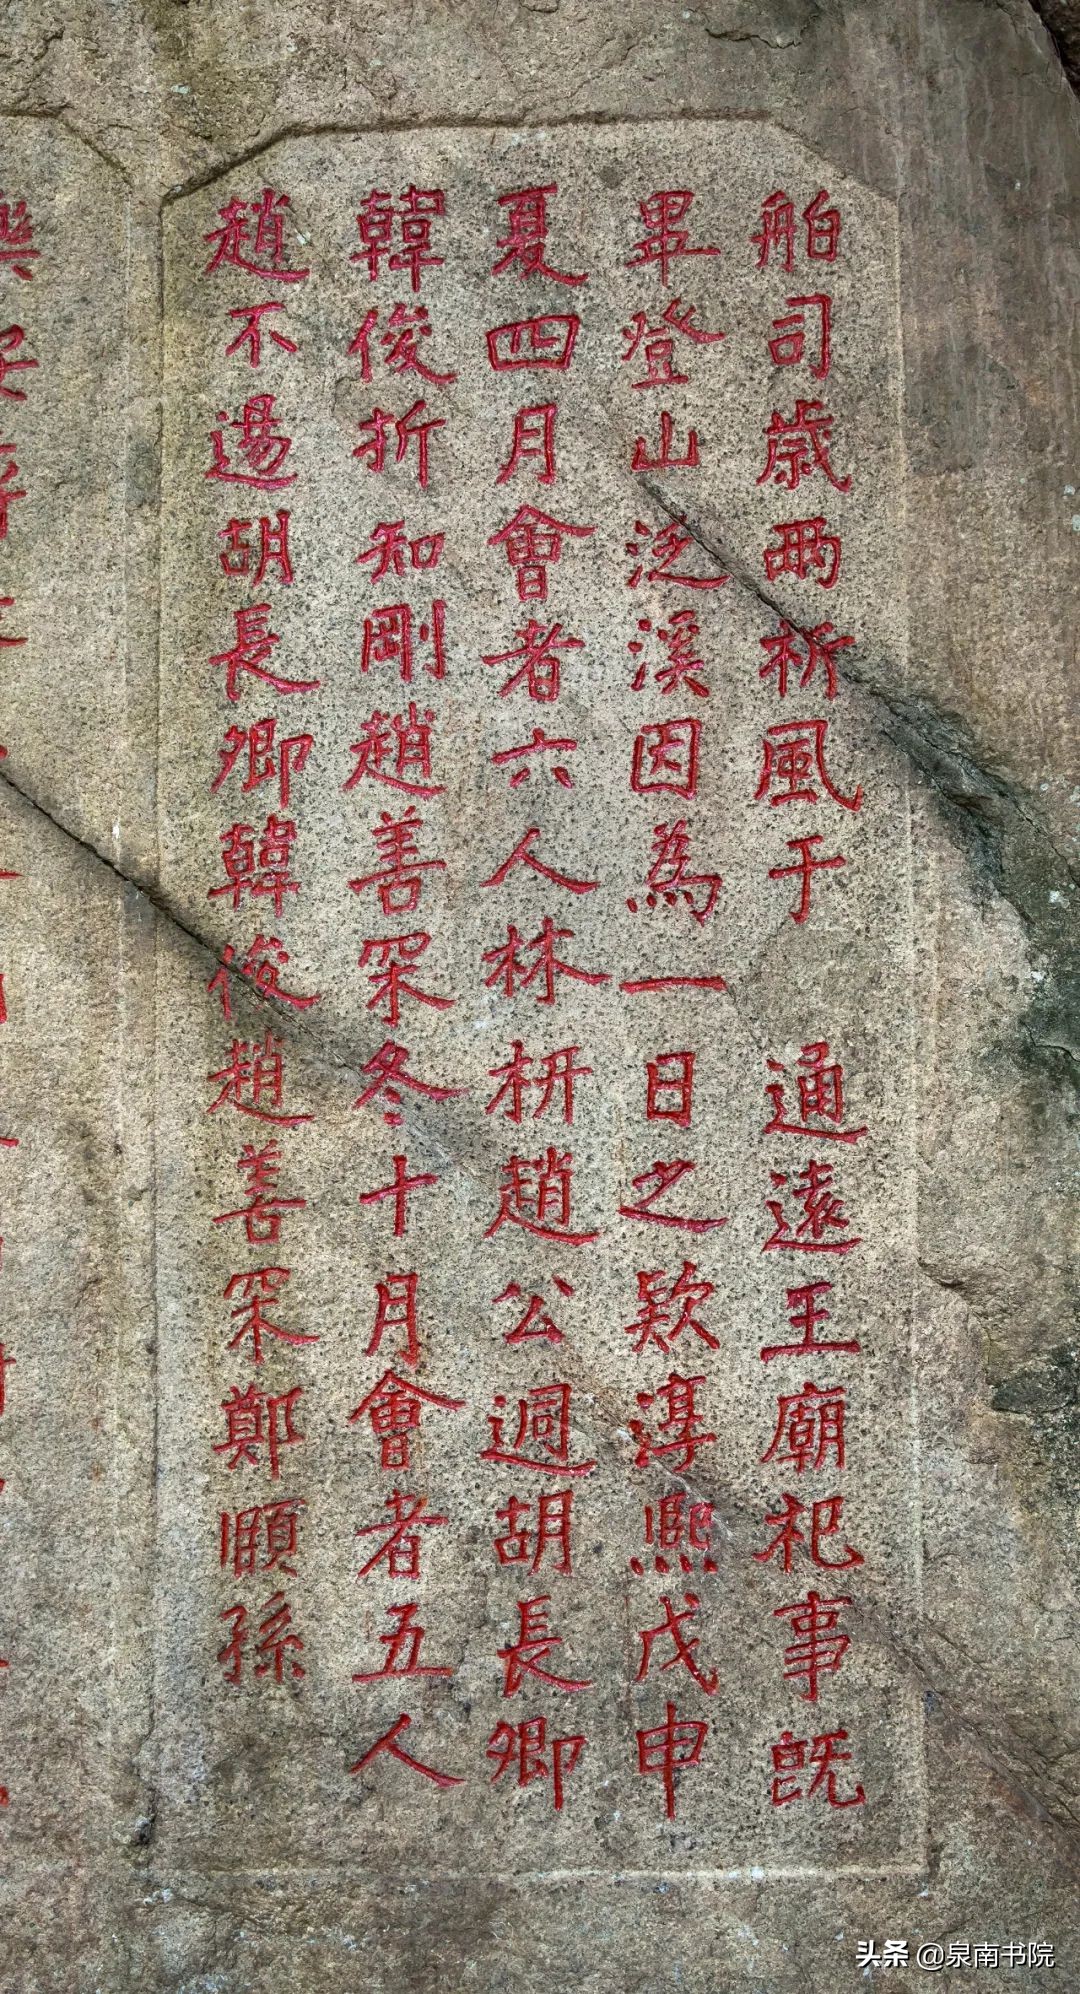 舶司歲兩祈風于　通遠王廟祀事既
畢登山泛溪因為一日之欵淳熙戊申
夏四月會者六人林枅趙公迵胡長卿
韓俊折知剛趙善罙冬十月會者五人
趙不逷胡長卿韓俊趙善罙鄭頤孫
头条 @泉南书院